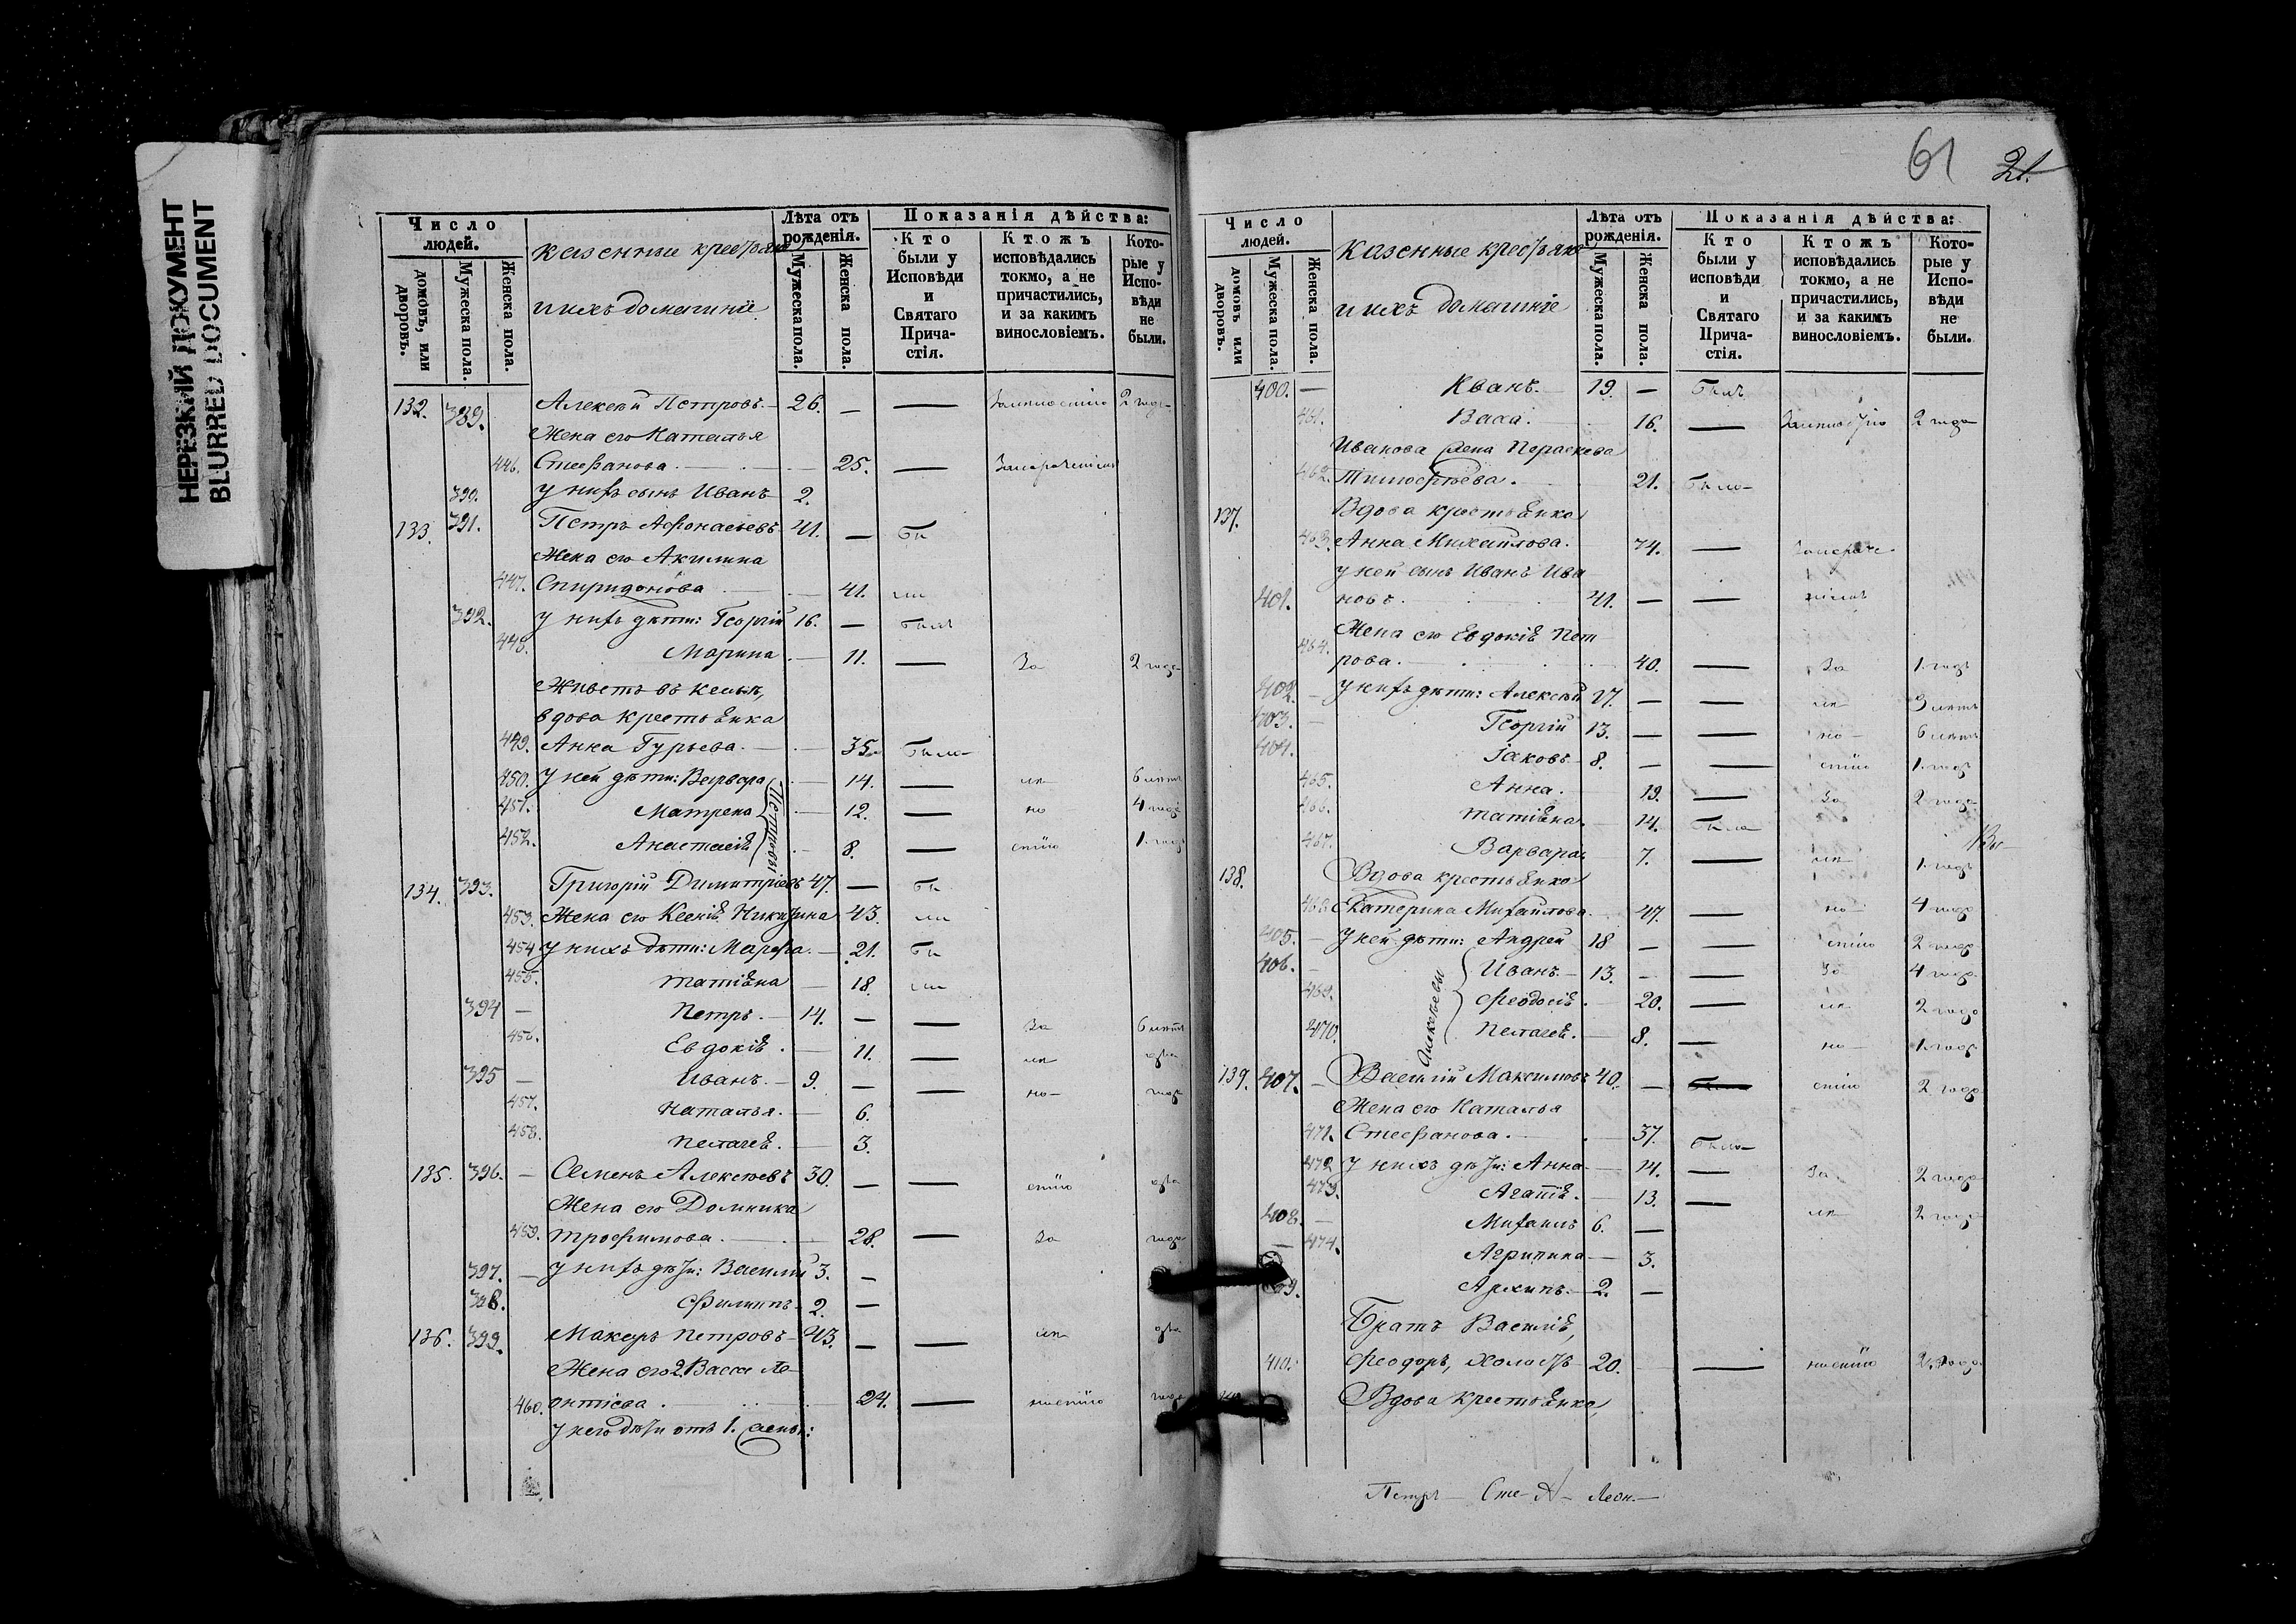 НЕРЕЗКИЙ ДОКУМЕНТ
BLURRED DOCUMENT
Число людей.
домовъ, или дворовъ.
Мужеска пола.
Женска пола.
казенные крестьяне
и ихъ домашніе
Лѣта отъ рожденія.
Мужеска пола.
Женска пола.
Показанія дѣйства:
Кто были у Исповѣди и Святаго Прича-стія.
Ктожъ исповѣдались токмо, а не причастились, и за какимъ винословіемъ.
Кото-рые у Испо-вѣди не были.
132. 389. Алексѣй Петровъ 26. — — 2 года
Жена его Наталья
446. Стефанова. 25. —
390. У нихъ сынъ Иванъ 2.
133. 391. Петръ Афонасьевъ 41. — бы
Жена его Акилина
447. Спиридонова 41. ли
392. У нихъ дѣти: Георгій 16. — былъ
448. Марина 11. — За 2 года
Живетъ въ кельѣ,
вдова крестьянка
449. Анна Гурьева. 35. была
450. У ней дѣти: Варвара 14. — лѣ 6 лѣтъ
451. Матрена 12. — но 4 года
452. Анастасія 8. — стію 1. годъ
134. 393. Григорій Димитріевъ 47. — бы
453. Жена его Ксенія Никитина 43. ли
454 У нихъ дѣти: Марфа. 21. бы
455. Татіана 18. ли
394 — Петръ. 14. — — За 6 лѣтъ
456. Евдокія. 11. — лѣ
395 — Иванъ. 9. — — но
457. Наталья. 6.
458. Пелагея. 3.
135. 396. — Семенъ Алексѣевъ 30. — — стію
Жена его Домника
459. Трофимова. 28. — За
397. — У нихъ дѣти: Василій 3. —
398. Филиппъ 2. —
136. 399. Макаръ Петровъ 43. — — лѣ
Жена его 2. Васса Ле-
460. онтіева. 24. — ностію
У него дѣти отъ 1. жены:
61 21.
Число людей.
домовъ или дворовъ.
Мужеска пола.
Женска пола.
казенные крестьяне
и ихъ домашніе
Лѣта отъ рожденія.
Мужеска пола.
Женска пола.
Показанія дѣйства:
Кто были у исповѣди и Святаго Прича-стія.
Ктожъ исповѣдались токмо, а не причастились, и за какимъ винословіемъ.
Кото-рые у Испо-вѣди не были.
400. — Иванъ. 19. — былъ
461. Васса. 16. — 2 года
Иванова жена Параскева
462. Тимофѣева. 21. была
137. Вдова крестьянка
463. Анна Михайлова. 74. —
у ней сынъ Иванъ Ива
401. новъ. 41. — —
Жена его Евдокія Пет
464. рова. 40. — За 1. годъ
402. — У нихъ дѣти: Алексѣй 17. — — лѣ 3 лѣтъ
403. — Георгій 13. — — но 6 лѣтъ
404. Іаковъ 8. — — стію 1. годъ
465. Анна. 19. — За 2 года
466. Татіана. 14. была
467. Варвара 7. — лѣ 1. годъ
138. Вдова крестьянка
468. Екатерина Михайлова. 47. — но 4 года
405. — У ней дѣти: Андрей 18 — — стію 2 года
406. — Иванъ. 13. — — За 4 года
469. Феодосія. 20. — лѣ 2 года
470. Пелагея. 8. — но 1. годъ
Алексѣевы
139. 407. — Василій Максимовъ 40. — стію 2 года
Жена его Наталья
471. Стефанова. 37. была
472 У нихъ дѣти: Анна 14. — За 2 года
473. Агапія. 13. — лѣ 2 года
408. — Михаилъ 6. —
— 474. Агрипина 3.
409. Архипъ. 2. —
Братъ Василія,
410. Феодоръ, холостъ 20. — ностію 2 года
Вдова крестьянка,